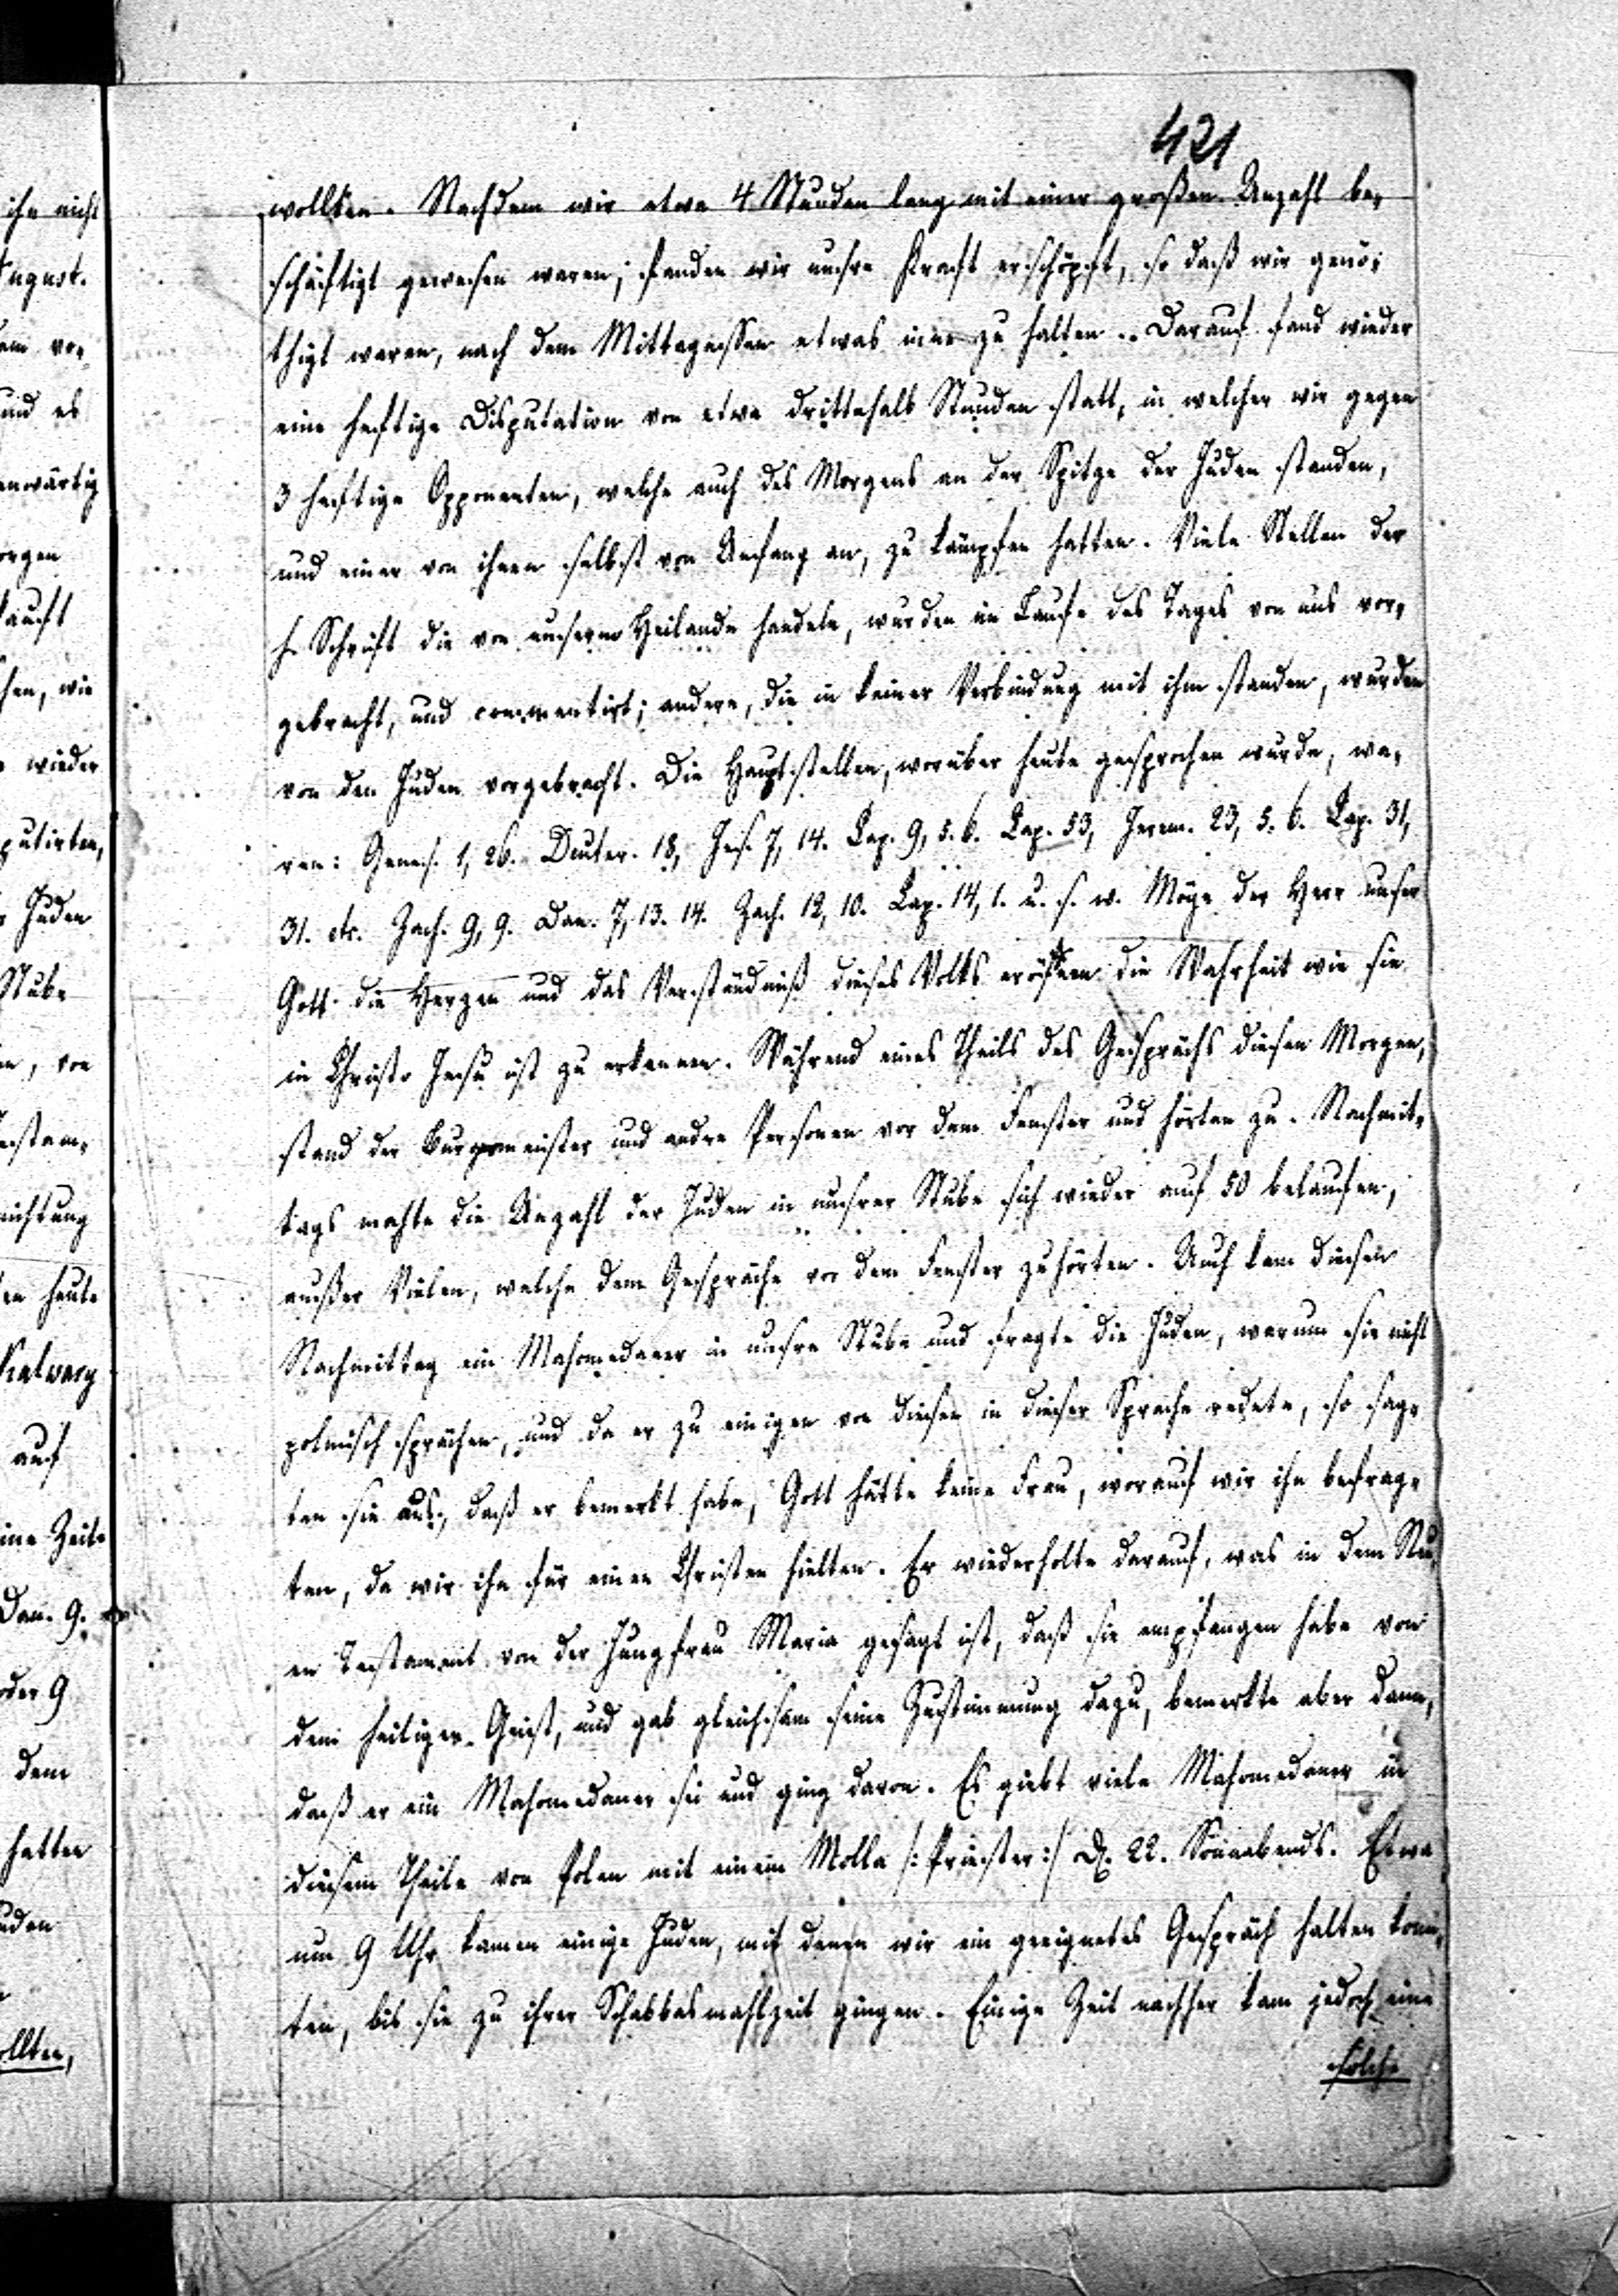 421
wollten. Nachdem wir etwa 4 Stunden lang mit einer großen Anzahl be-
schäftigt gewesen waren; fanden wir unsre Kraft erschöpft, so daß wir genö-
thigt waren, nach dem Mittagessen etwas inne zu halten. Darauf fand wieder
eine heftige Disputation von etwa drittehalb Stunden statt, in welcher wir gegen
3 heftige Opponenten, welche auch des Morgens an der Spitze der Juden standen,
und einer von ihnen selbst von Anfang an, zu kämpfen hatten. Viele Stellen der
h. Schrift die von unserm Heilande handeln, wurden im Laufe des Tages von uns vor-
gebracht, und commentirt; andere, die in keiner Verbindung mit ihm standen, wurden
von den Juden vorgebracht. Die Hauptstellen, worüber heute gesprochen wurde, wa-
ren: Genes. 1, 26. Deuter. 18, Jes. 7, 14. Cap. 9, 5. 6. Cap. 53, Jerem. 23, 5. 6. Cap. 31,
31. etc. Zach. 9, 9. Dan. 7, 13. 14. Zach. 12, 10. Cap. 14, 1. u. s. w. Möge der Herr unser
Gott die Herzen und das Verständniß dieses Volks eröffnen die Wahrheit wie sie
in Christo Jesu ist zu erkennen. Während eines Theils des Gesprächs diesen Morgen,
stand der Burgemeister und andre Personen vor dem Fenster und hörten zu. Nachmit-
tags mochte die Anzahl der Juden in unsrer Stube sich wieder auf 50 belaufen,
außer Vielen, welche dem Gespräche vor dem Fenster zuhörten. Auch kam diesen
Nachmittag ein Mahomedaner in unsre Stube und fragte die Juden, warum sie nicht
polnisch sprächen, und da er zu einigen von diesen in dieser Sprache redete, so sag-
ten sie uns, daß er bemerkt habe, Gott hätte keine Frau, worauf wir ihn befrag-
ten, da wir ihn für einen Christen hielten. Er wiederholte darauf, was in dem Neu-
en Testament von der Jungfrau Maria gesagt ist, daß sie empfangen habe von
dem heiligen Geist, und gab gleichsam seine Zustimmung dazu, bemerkte aber dann,
daß er ein Mahomedaner sei und ging davon. Es giebt viele Mahomedaner in
diesem Theile von Polen mit einem Molla /: Priester :/ D. 22. Sonnabends. Etwa
um 9 Uhr kamen einige Juden, mit denen wir ein geeignetes Gespräch halten konn-
ten, bis sie zu ihrer Schabbasmahlzeit gingen. Einige Zeit nachher kam jedoch eine
solche